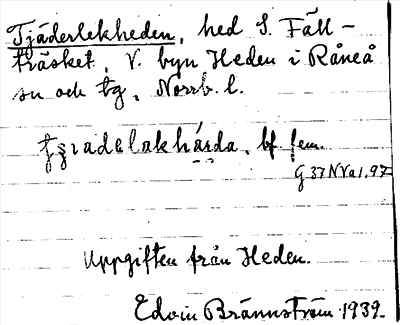 Tjäderlekheden, hed S. Fäll-
träsket, V. byn Heden i Råneå
sn och tg, Norrb. l.
bf. fem.
G 37 N Va 1. 97
Uppgiften från Heden.
Edvin Brännström 1939.